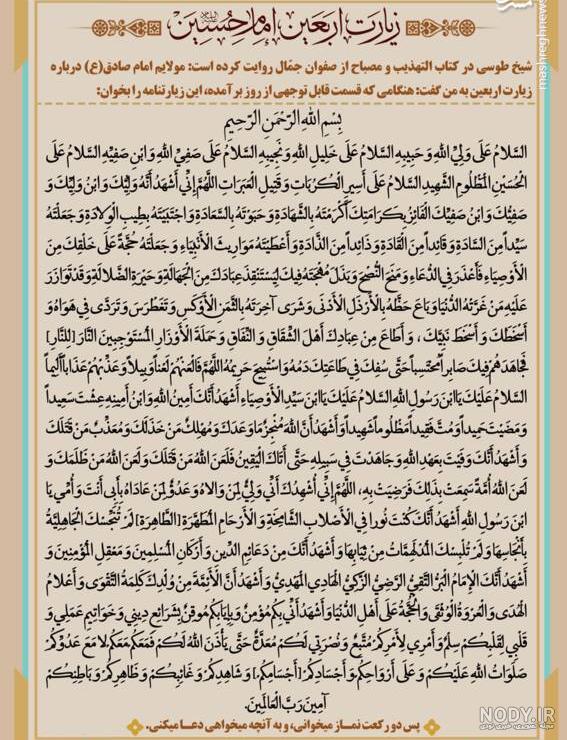 زیارت اربعین امام حسین
شیخ طوسی در کتاب التهذیب و مصباح از صفوان جمّال روایت کرده است: مولایم امام صادق(ع) درباره
زیارت اربعین به من گفت: هنگامی که قسمت قابل توجهی از روز برآمده، این زیارتنامه را بخوان:
بِسْمِ اللهِ الرَّحْمَنِ الرَّحِيمِ
السَّلامُ عَلَى وَلِيِّ اللهِ وَحَبِيبِهِ السَّلامُ عَلَى خَلِيلِ اللهِ وَنَجِيبِهِ السَّلامُ عَلَى صَفِيِّ اللهِ وَابْنِ صَفِيِّهِ السَّلامُ عَلَى
الْحُسَيْنِ الْمَظْلُومِ الشَّهِيدِ السَّلامُ عَلَى أَسِيرِ الْكُرُبَاتِ وَقَتِيلِ الْعَبَرَاتِ اللَّهُمَّ إِنِّي أَشْهَدُ أَنَّهُ وَلِيُّكَ وَابْنُ وَلِيِّكَ وَ
صَفِيُّكَ وَابْنُ صَفِيِّكَ الْفَائِزُ بِكَرَامَتِكَ أَكْرَمْتَهُ بِالشَّهَادَةِ وَحَبَوْتَهُ بِالسَّعَادَةِ وَاجْتَبَيْتَهُ بِطِيبِ الْوِلادَةِ وَجَعَلْتَهُ
سَيِّداً مِنَ السَّادَةِ وَقَائِداً مِنَ الْقَادَةِ وَذَائِداً مِنَ الذَّادَةِ وَأَعْطَيْتَهُ مَوَارِيثَ الْأَنْبِيَاءِ وَجَعَلْتَهُ حُجَّةً عَلَى خَلْقِكَ مِنَ
الْأَوْصِيَاءِ فَأَعْذَرَ فِي الدُّعَاءِ وَمَنَحَ النُّصْحَ وَبَذَلَ مُهْجَتَهُ فِيكَ لِيَسْتَنْقِذَ عِبَادَكَ مِنَ الْجَهَالَةِ وَحَيْرَةِ الضَّلالَةِ وَقَدْ تَوَازَرَ
عَلَيْهِ مَنْ غَرَّتْهُ الدُّنْيَا وَبَاعَ حَظَّهُ بِالْأَرْذَلِ الْأَدْنَى وَشَرَى آخِرَتَهُ بِالثَّمَنِ الْأَوْكَسِ وَتَغَطْرَسَ وَتَرَدَّى فِي هَوَاهُ وَ
أَسْخَطَكَ وَأَسْخَطَ نَبِيَّكَ، وَأَطَاعَ مِنْ عِبَادِكَ أَهْلَ الشِّقَاقِ وَالنِّفَاقِ وَحَمَلَةَ الْأَوْزَارِ الْمُسْتَوْجِبِينَ النَّارَ [لِلنَّارِ]
فَجَاهَدَهُمْ فِيكَ صَابِراً مُحْتَسِباً حَتَّى سُفِكَ فِي طَاعَتِكَ دَمُهُ وَاسْتُبِيحَ حَرِيمُهُ اللَّهُمَّ فَالْعَنْهُمْ لَعْناً وَبِيلاً وَعَذِّبْهُمْ عَذَاباً أَلِيماً
السَّلامُ عَلَيْكَ يَا ابْنَ رَسُولِ اللهِ السَّلامُ عَلَيْكَ يَا ابْنَ سَيِّدِ الْأَوْصِيَاءِ أَشْهَدُ أَنَّكَ أَمِينُ اللهِ وَابْنُ أَمِينِهِ عِشْتَ سَعِيداً
وَمَضَيْتَ حَمِيداً وَمُتَّ فَقِيداً مَظْلُوماً شَهِيداً وَأَشْهَدُ أَنَّ اللهَ مُنْجِزٌ مَا وَعَدَكَ وَمُهْلِكٌ مَنْ خَذَلَكَ وَمُعَذِّبٌ مَنْ قَتَلَكَ
وَأَشْهَدُ أَنَّكَ وَفَيْتَ بِعَهْدِ اللهِ وَجَاهَدْتَ فِي سَبِيلِهِ حَتَّى أَتَاكَ الْيَقِينُ فَلَعَنَ اللهُ مَنْ قَتَلَكَ وَلَعَنَ اللهُ مَنْ ظَلَمَكَ وَ
لَعَنَ اللهُ أُمَّةً سَمِعَتْ بِذَلِكَ فَرَضِيَتْ بِهِ، اللَّهُمَّ إِنِّي أُشْهِدُكَ أَنِّي وَلِيٌّ لِمَنْ وَالاهُ وَعَدُوٌّ لِمَنْ عَادَاهُ بِأَبِي أَنْتَ وَأُمِّي يَا
ابْنَ رَسُولِ اللهِ أَشْهَدُ أَنَّكَ كُنْتَ نُوراً فِي الْأَصْلابِ الشَّامِخَةِ وَالْأَرْحَامِ الْمُطَهَّرَةِ [الطَّاهِرَةِ] لَمْ تُنَجِّسْكَ الْجَاهِلِيَّةُ
بِأَنْجَاسِهَا وَلَمْ تُلْبِسْكَ الْمُدْلَهِمَّاتُ مِنْ ثِيَابِهَا وَأَشْهَدُ أَنَّكَ مِنْ دَعَائِمِ الدِّينِ وَأَرْكَانِ الْمُسْلِمِينَ وَمَعْقِلِ الْمُؤْمِنِينَ وَ
أَشْهَدُ أَنَّكَ الْإِمَامُ الْبَرُّ التَّقِيُّ الرَّضِيُّ الزَّكِيُّ الْهَادِي الْمَهْدِيُّ وَأَشْهَدُ أَنَّ الْأَئِمَّةَ مِنْ وُلْدِكَ كَلِمَةُ التَّقْوَى وَأَعْلامُ
الْهُدَى وَالْعُرْوَةُ الْوُثْقَى وَالْحُجَّةُ عَلَى أَهْلِ الدُّنْيَا وَأَشْهَدُ أَنِّي بِكُمْ مُؤْمِنٌ وَبِإِيَابِكُمْ مُوقِنٌ بِشَرَائِعِ دِينِي وَخَوَاتِيمِ عَمَلِي وَ
قَلْبِي لِقَلْبِكُمْ سِلْمٌ وَأَمْرِي لِأَمْرِكُمْ مُتَّبِعٌ وَنُصْرَتِي لَكُمْ مُعَدَّةٌ حَتَّى يَأْذَنَ اللهُ لَكُمْ فَمَعَكُمْ مَعَكُمْ لا مَعَ عَدُوِّكُمْ
صَلَوَاتُ اللهِ عَلَيْكُمْ وَعَلَى أَرْوَاحِكُمْ وَأَجْسَادِكُمْ [أَجْسَامِكُمْ] وَشَاهِدِكُمْ وَغَائِبِكُمْ وَظَاهِرِكُمْ وَبَاطِنِكُمْ
آمِينَ رَبَّ الْعَالَمِينَ.
پس دو رکعت نماز میخوانی، و به آنچه میخواهی دعا میکنی.
mashreghnews
NODY.IR